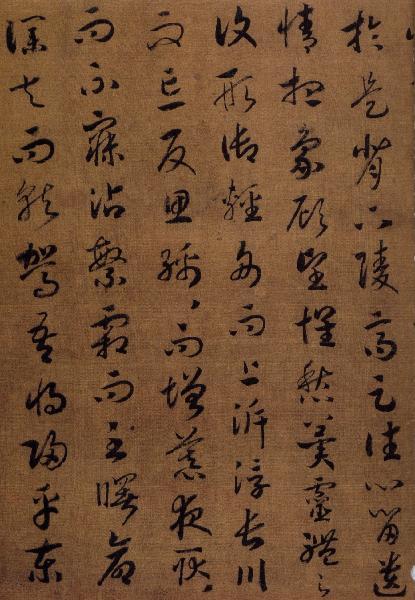 於是背下陵高足往心留遺
情想象顧望懷愁冀靈體之
復形御輕舟而上泝浮長川
而忘反思綿、而增慕夜耿、
而不寐沾繁霜而至曙命
僕夫而就駕吾將歸乎東